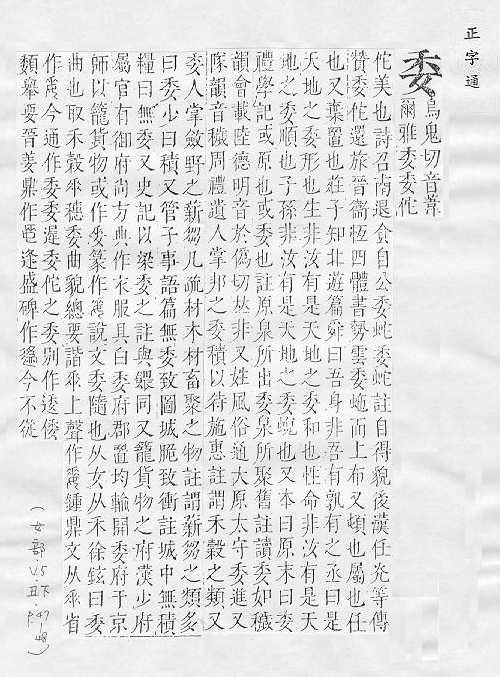 正字通
委 烏鬼切音萎
爾雅委委佗
佗美也詩召南退食自公委蛇委蛇註自得貌後漢任光等傳
贊委佗還旅晉衞恆四體書勢雲委蛇而上布又頓也屬也任
也又棄置也莊子知北遊篇舜曰吾身非吾有孰有之丞曰是
天地之委形也生非汝有是天地之委和也性命非汝有是天
地之委順也子孫非汝有是天地之委蛻也又本曰原末曰委
禮學記或原也或委也註原泉所出委泉所聚舊註讀委如穢
韻會載陸德明音於偽切𠀤非又姓風俗通大原太守委進又
隊韻音穢周禮遺人掌邦之委積以待施惠註謂禾穀之類又
委人掌斂野之薪芻凡疏材木材畜聚之物註謂薪芻之類多
曰委少曰積又管子事語篇無委致圍城脆致衝註城中無積
糧曰無委又史記以粱委之註與餧同又籠貨物之府漢少府
屬官有御府尚方典作衣服具臼委府郡置均輸開委府于京
師以籠貨物或作篆作說文委隨也从女从禾徐鉉曰委
曲也取禾穀𠂹穗委曲貌總要諧𠂹上聲作鍾鼎文从𠂹省
作今通作委委逶委佗之委別作逶倭
類舉要晉姜鼎作逢盛碑作今不從
(女部 丑下 P.47 48)